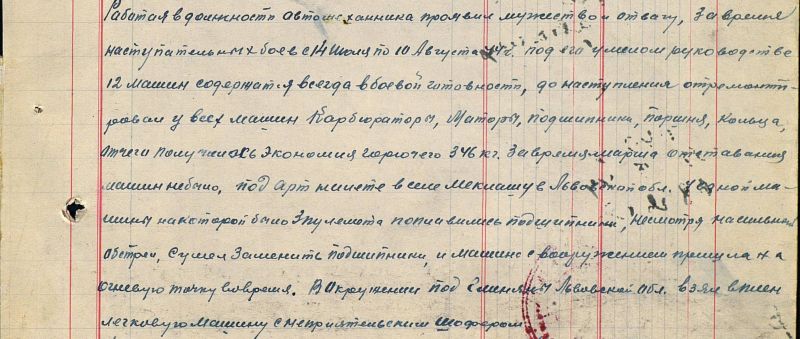 Работая в должности автомеханника проявил мужество и отвагу, За время
наступательных боев с 14 Июля по 10 Августа 44г. под его умелом руководстве
12 машин содержатся всегда в боевой готовность, до наступления отремонти-
ровал у всех машин Карбюраторы, Маторы, подшипники, поршня, кольца,
отчего получилось экономия горючего 346 кг. За время марша отставания
машин небыло, под арт минете в селе Меклашув Львовской обл. у одной ма-
шины на которой было 3 пулемота поплавились подшипники, несмотря на сильный
обстрел, сумел заменить подшипники, и машина с вооружением пришла на
огневую точку вовремя. В окружении под Глиняны Львовской обл. взял в плен
легковую машину с неприятельским шофером